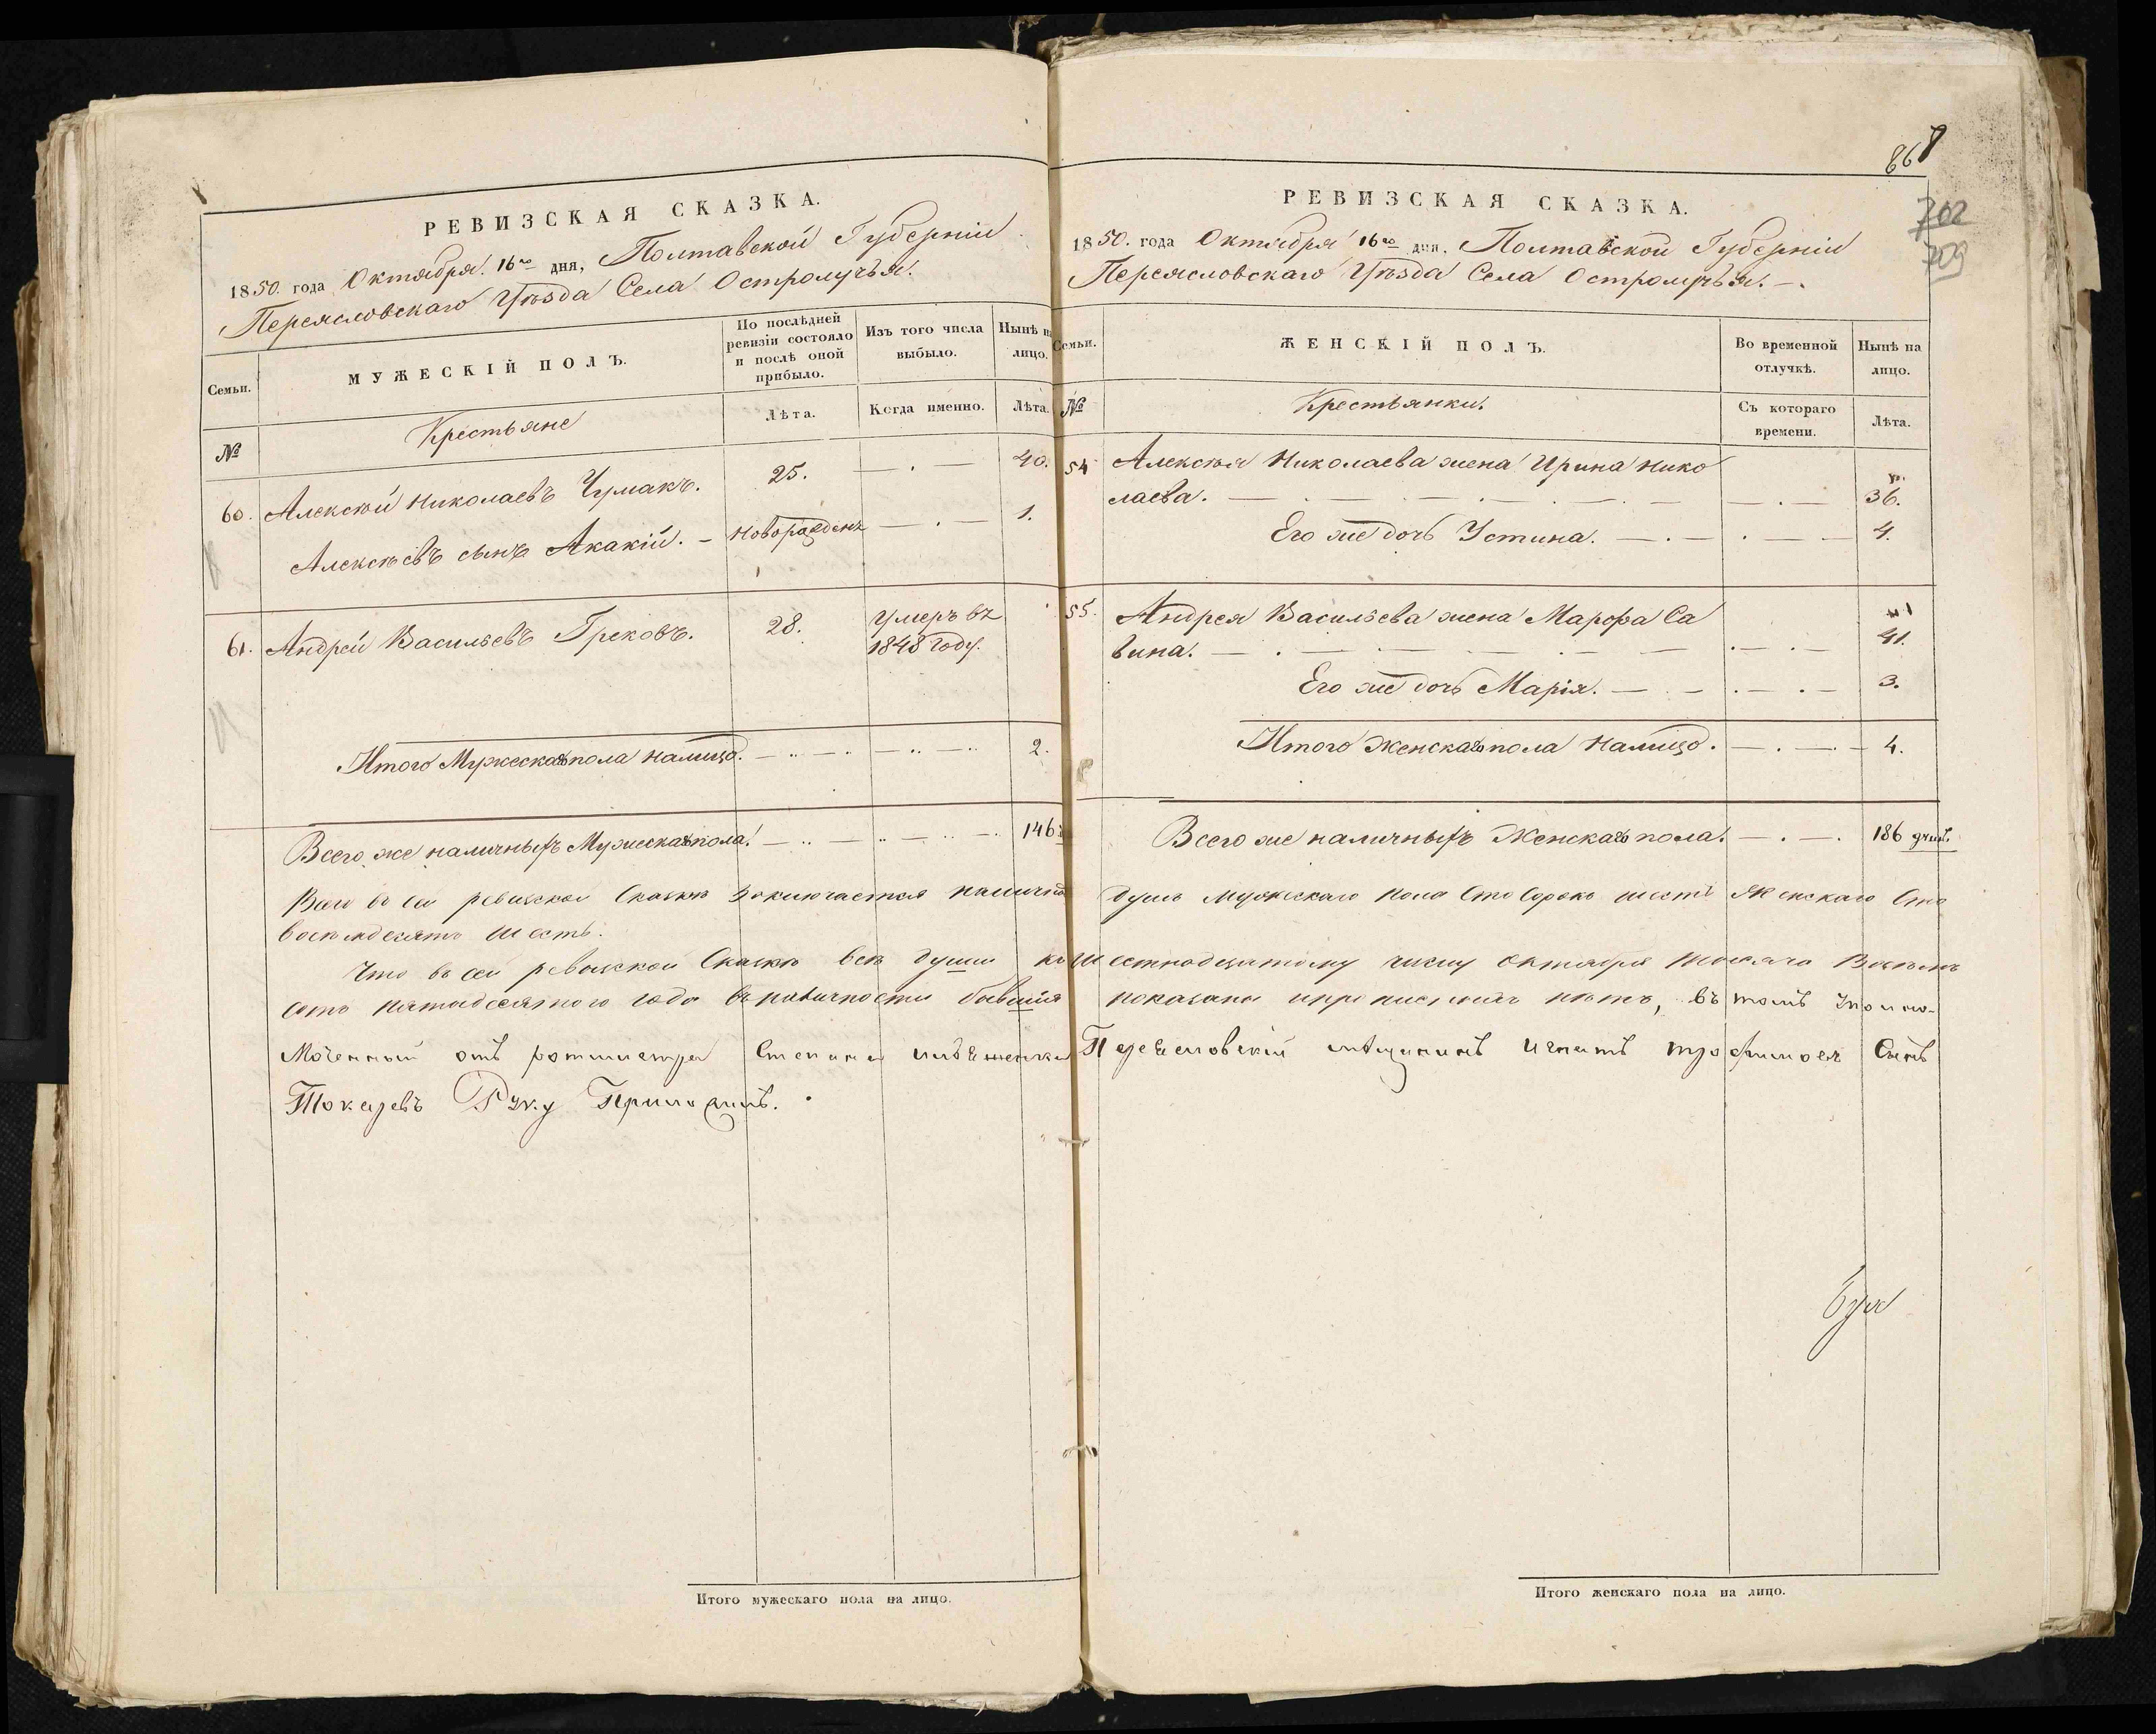 РЕВИЗСКАЯ СКАЗКА.
1850. года Октября. 16го дня, Полтавской Губерніи
Переясловскаго Уѣзда Села Остролучья.
Семьи.
МУЖЕСКІЙ ПОЛЪ.
По послѣдней ревизіи состояло и послѣ оной прибыло.
Изъ того числа выбыло.
Нынѣ на лицо.
№
Крестьяне
Лѣта.
Когда именно.
Лѣта.
60. Алексѣй Николаевъ Чумакъ. 25. — . — 40.
Алексѣевъ сынъ Акакій. — новорожденъ — . — 1.
61. Андрей Васильевъ Грековъ. 28. Умеръ въ
1848 году.
Итого Мужеска пола налицо. — .. — .. — .. — .. 2.
Всего же наличныхъ Мужеска пола. — .. — .. — .. — . 146
РЕВИЗСКАЯ СКАЗКА.
867
702
709
1850. года Октября 16го дня. Полтавской Губерніи
Переясловскаго Уѣзда Села Остролучья. —.
Семьи.
ЖЕНСКІЙ ПОЛЪ.
Во временной отлучкѣ.
Нынѣ на лицо.
№
Крестьянки.
Съ котораго времени.
Лѣта.
54 Алексѣя Николаева жена Ирина Нико
лаева. — . — . — . — . — — . — 36.
Его же дочь Устина. — . — . — — 4.
55. Андрея Васильева жена Марфа Са
вина. — . — . — — — — . — . — 41.
Его же дочь Марія. — . — . — . — 3.
Итого Женска пола налицо. — . — . — 4.
Всего же наличныхъ Женска пола. — . — . 186 душъ.
Всего въ сей ревизской Сказкѣ заключается налично душъ мужескаго пола Сто Сорокъ шесть Женскаго Сто
восемдесятъ шесть.
Что въ сей ревизской Сказкѣ всѣ души къ шестнадцатому числу Октября тысяча Восемь
сотъ пятидесятого года въ наличности бывшія показаны и прописныхъ нѣтъ, въ томъ Уполно-
моченный отъ ротмистра Степана Переясловскій мѣщанинъ Игнатъ трофимовъ Сынъ
Токаревъ Руку Приложилъ.
Итого мужескаго пола на лицо.
Итого женскаго пола на лицо.